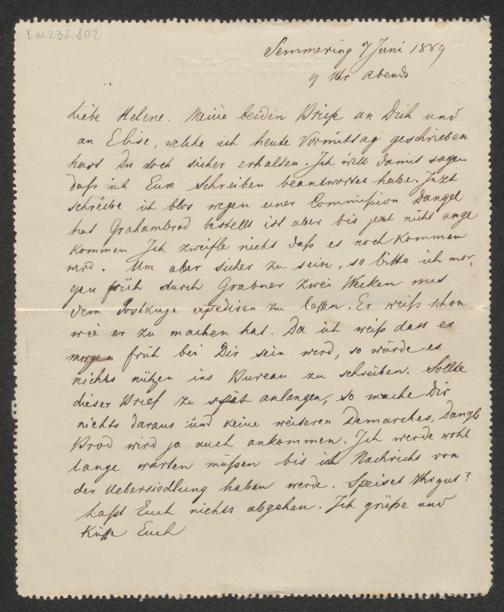 I.N. 232.802
Semmering 7 Juni 1889
9 Uhr Abends
Liebe Helene. Meine beiden Briefe an Dich und
an Elise, welche ich heute Vormittag geschrieben
hast Du doch sicher erhalten. Ich will damit sagen
daß ich Eure Schreiben beantwortet habe. Jetzt
schreibe ich blos wegen einer Commission Dangl
hat Grahambrod bestellt ist aber bis jetzt nicht ange
kommen Ich zweifle nicht daß es noch kommen
wird. Um aber sicher zu sein, so bitte ich mor-
gen früh durch Grabner zwei Wecken mit
dem Postzuge expediren zu lassen. Er weiß schon
wie er zu machen hat. Da ich weiß dass er
morgen früh bei Dir sein werd, so würde es
nichts nützen ins Bureau zu schreiben. Sollte
dieser Brief zu spät anlangen, so mache Dir
nichts daraus und keine weiteren Demarches, Dangls
Brod wird ja auch ankommen. Ich werde wohl
lange warten müßen bis ich Nachricht von
der Uebersiedlung haben werde. Speiset Ihr gut?
Laßt Euch nichts abgehen. Ich grüße und
Küsse Euch